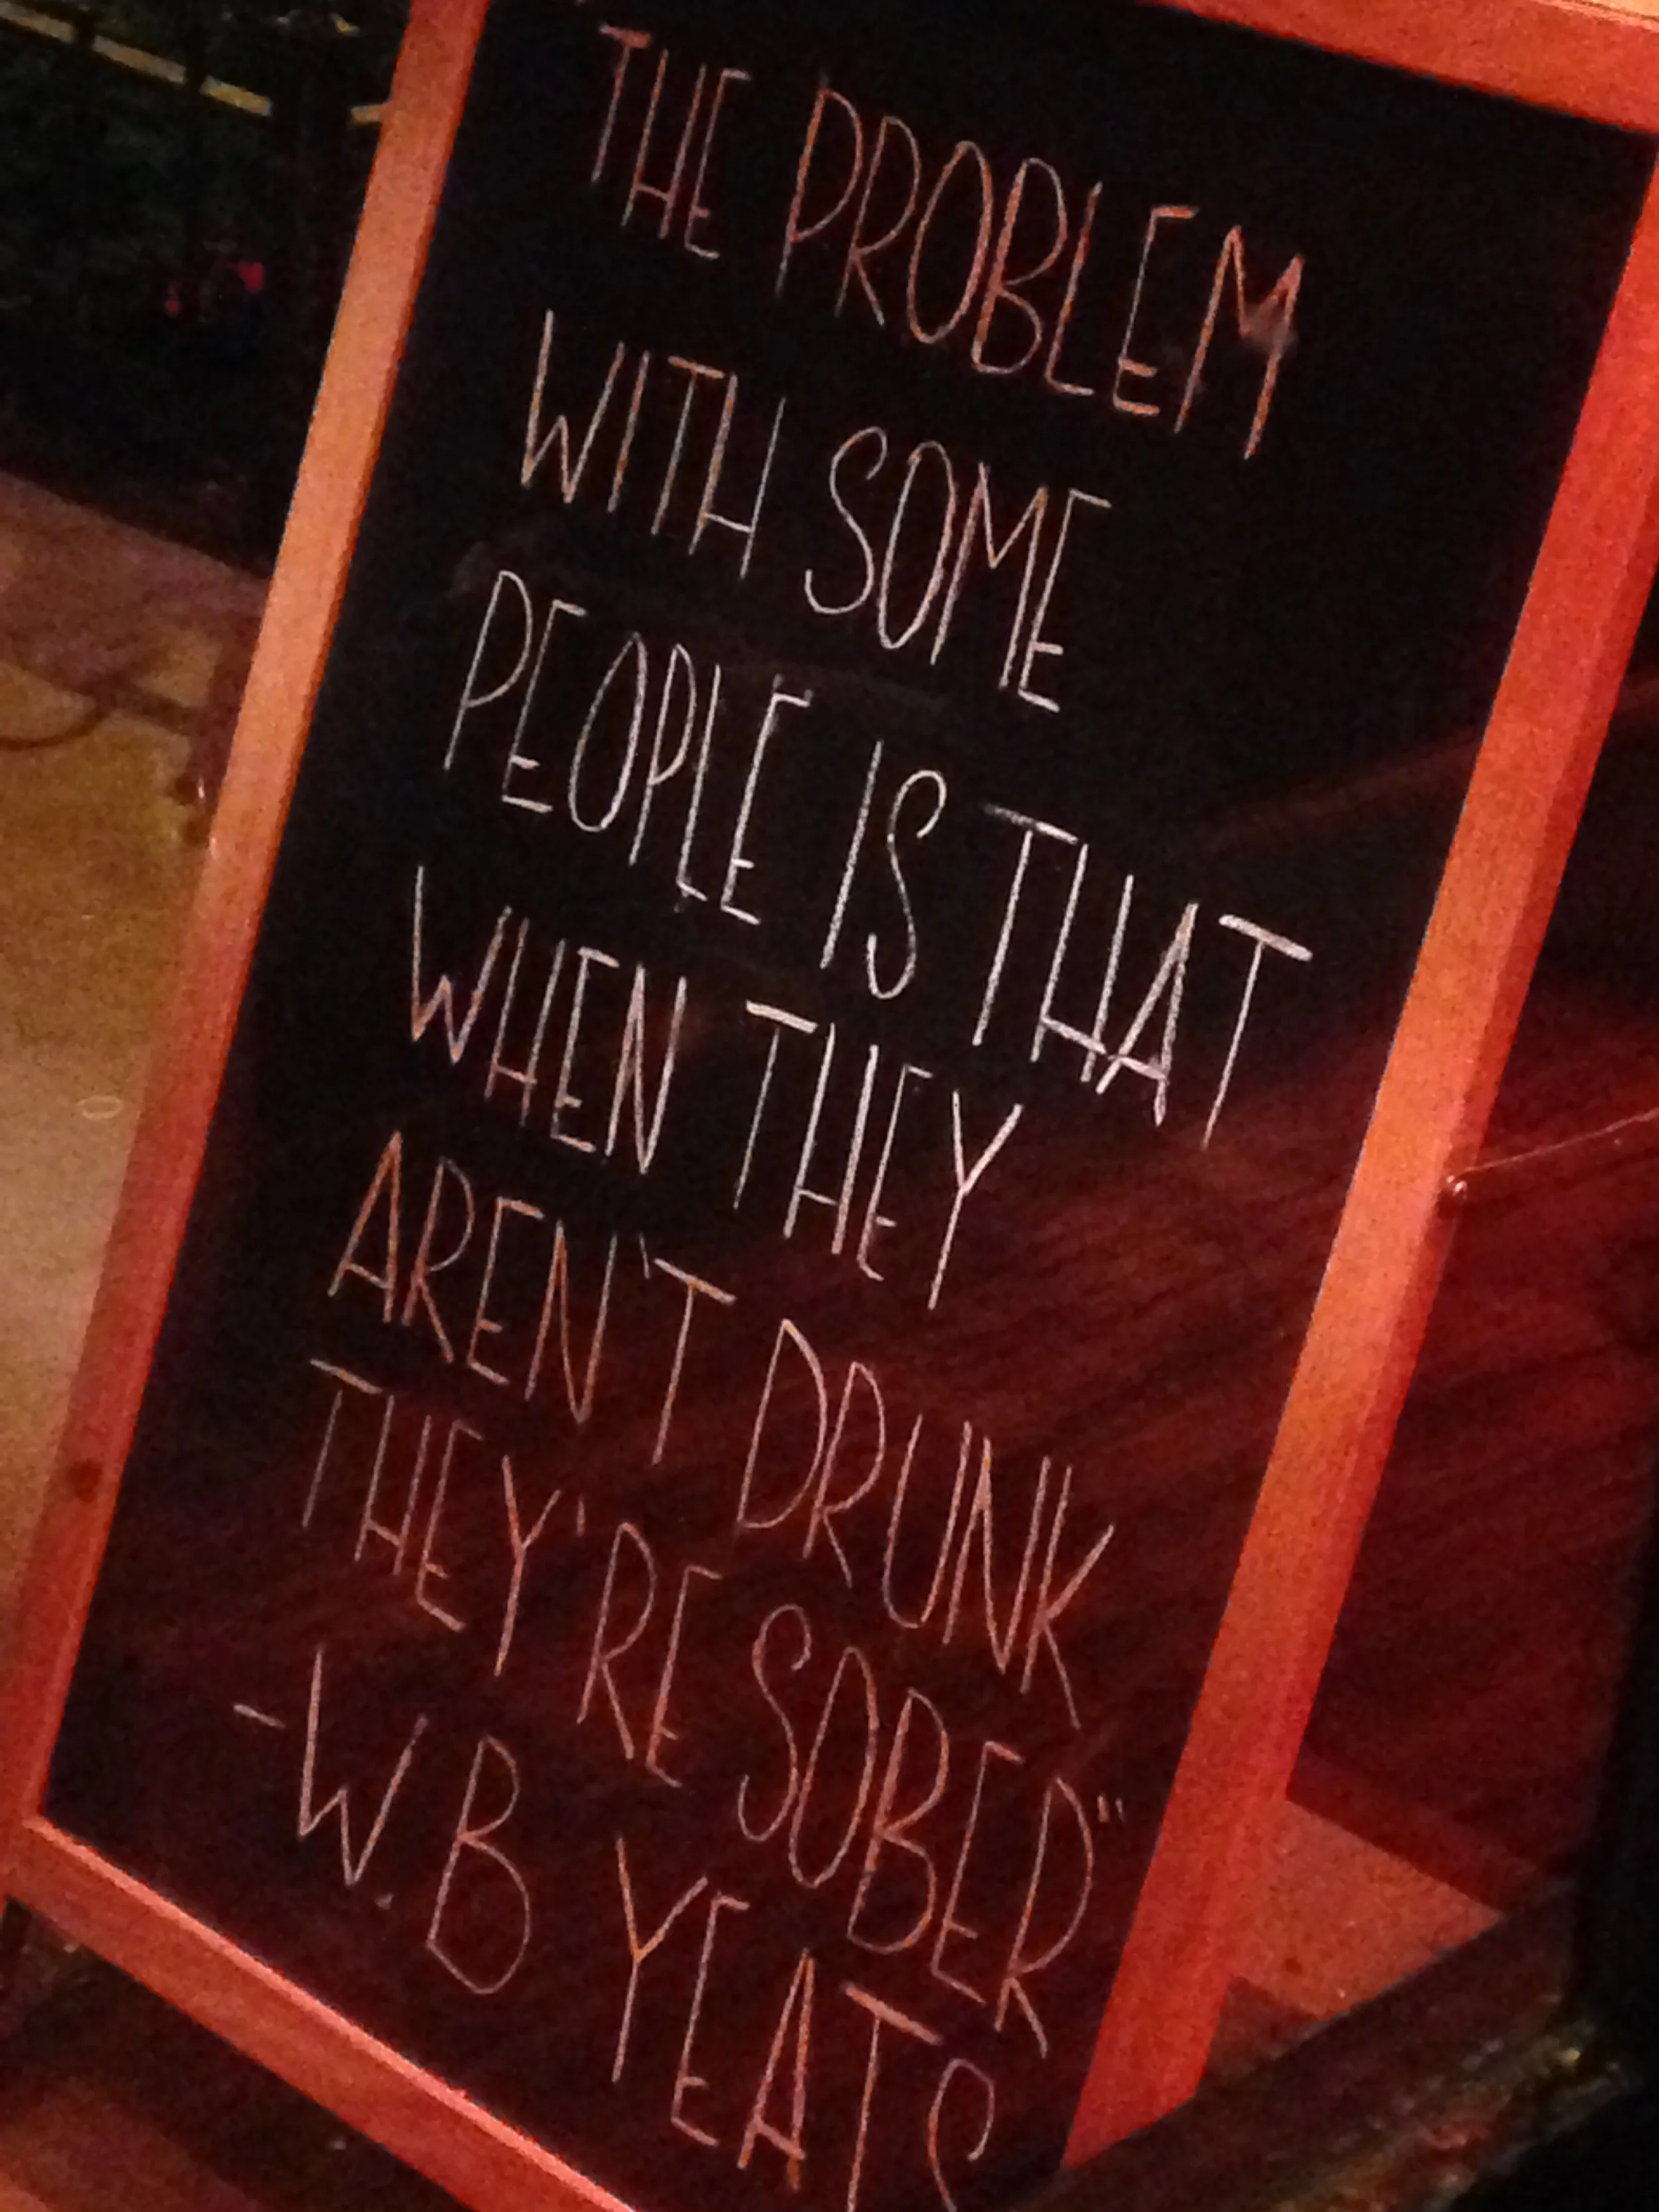 THE PROBLEM
WITH SOME
PEOPLE IS THAT
WHEN THEY
AREN'T DRUNK
THEY'RE SOBER"
-W.B YEATS